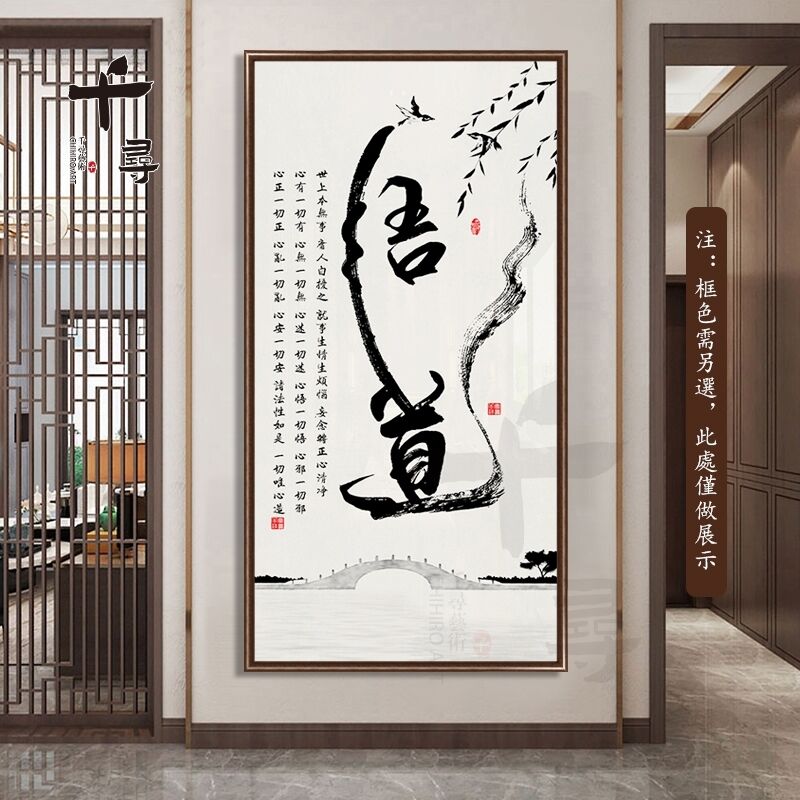 千尋
千尋藝術
CHIHIRO ART
悟道
世上本無事 庸人自擾之 就事生情生煩惱 妄念轉正心清净
心有一切有 心無一切無 心迷一切迷 心悟一切悟 心邪一切邪
心正一切正 心亂一切亂 心安一切安 諸法性如是 一切唯心造
注：框色需另選，此處僅做展示
千尋
尋藝術
CHIHIRO ART